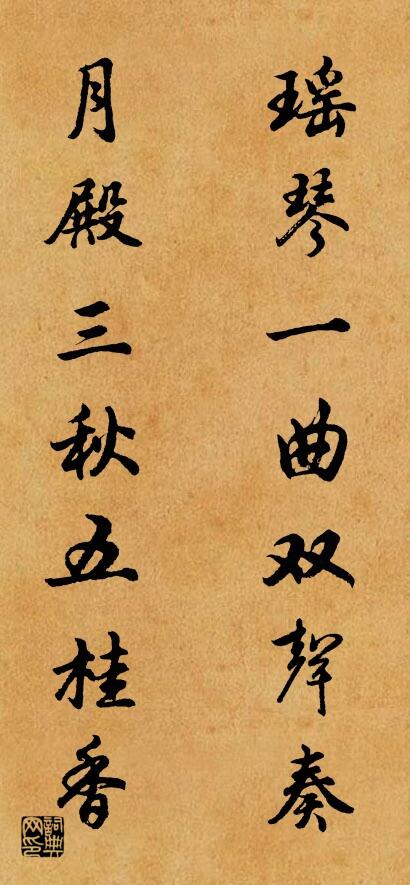 瑶琴一曲双聲奏
月殿三秋五桂香
詞典网印